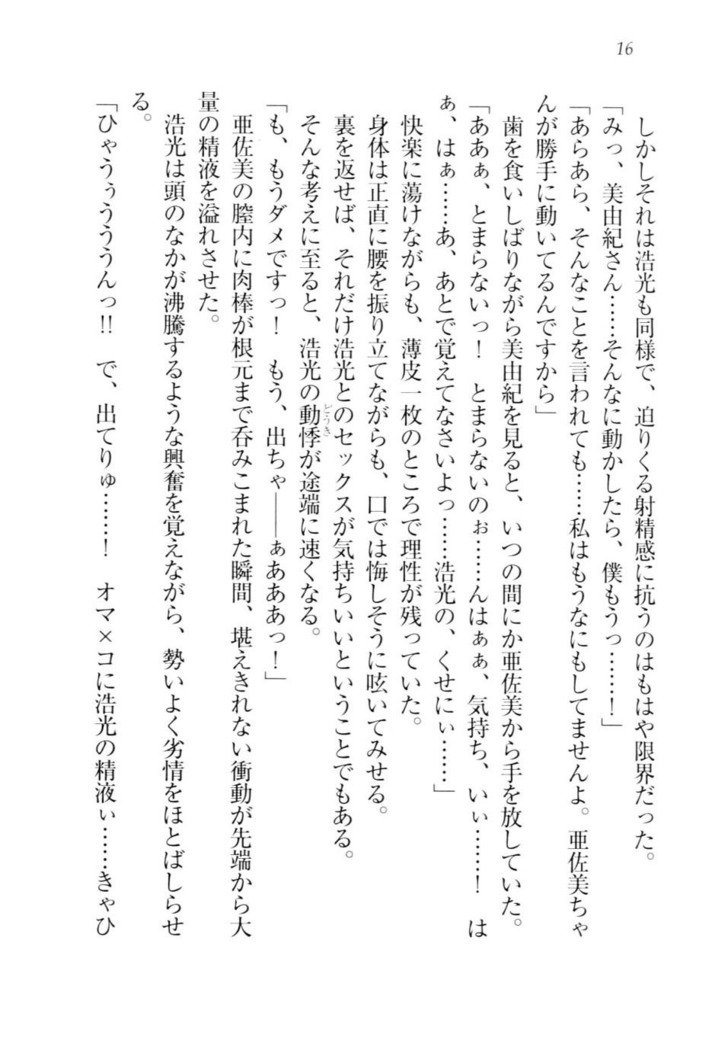 16
しかしそれは浩光も同様で、迫りくる射精感に抗うのはもはや限界だった。
「みっ、美由紀さん……そんなに動かしたら、僕もうっ……！」
「あらあら、そんなことを言われても……私はもうなにもしてませんよ。亜佐美ちゃ
んが勝手に動いてるんですから」
歯を食いしばりながら美由紀を見ると、いつの間にか亜佐美から手を放していた。
「ああぁ、とまらないっ！　とまらないのぉ……んはぁぁ、気持ち、いぃ……！　は
ぁ、はぁ……あ、あとで覚えてなさいよっ……浩光の、くせにぃ……」
快楽に蕩けながらも、薄皮一枚のところで理性が残っていた。
身体は正直に腰を振り立てながらも、口では悔しそうに呟いてみせる。
裏を返せば、それだけ浩光とのセックスが気持ちいいということでもある。
そんな考えに至ると、浩光の動悸（どうき）が途端に速くなる。
「も、もうダメですっ！　もう、出ちゃ――ぁあああっ！」
亜佐美の膣内に肉棒が根元まで呑みこまれた瞬間、堪えきれない衝動が先端から大
量の精液を溢れさせた。
浩光は頭のなかが沸騰するような興奮を覚えながら、勢いよく劣情をほとばしらせ
る。
「ひゃうぅうううんっ!!　で、出てりゅ……！　オマ×コに浩光の精液ぃ……きゃひ